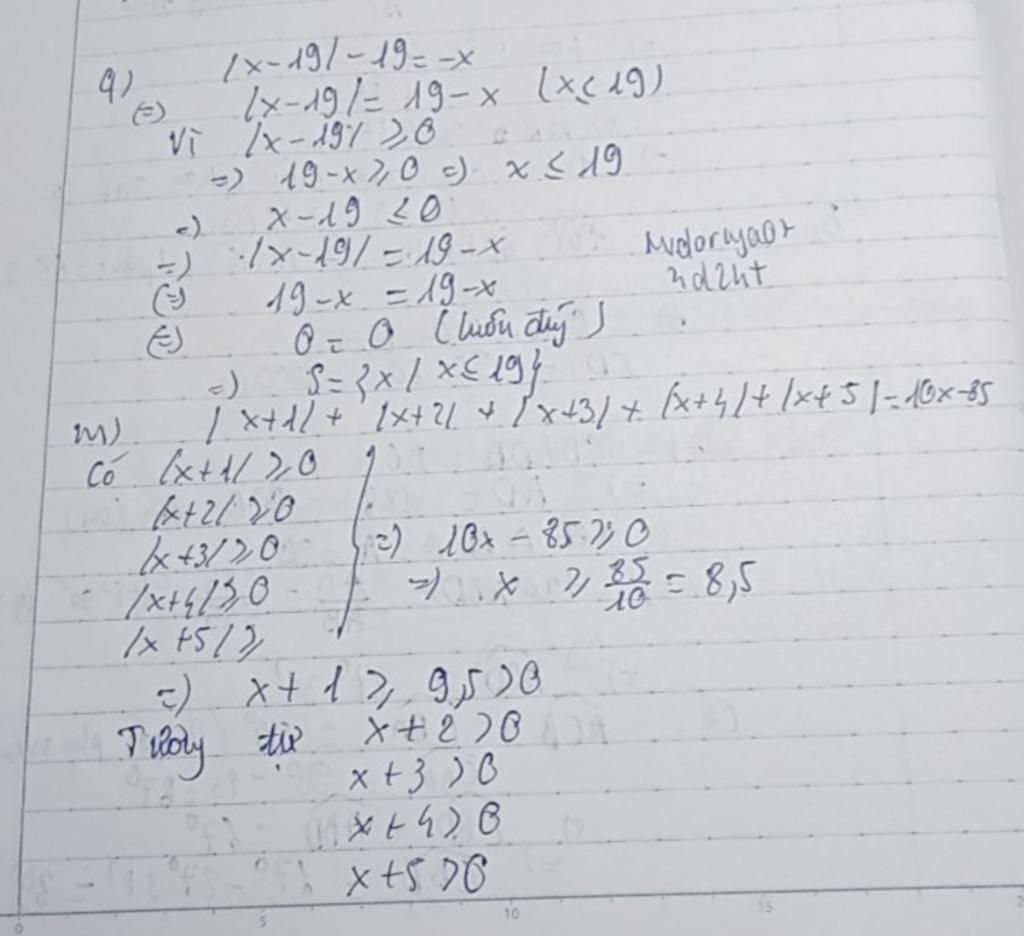 q) |x-19| - 19 = -x
(=) |x-19| = 19-x (x ≤ 19)
Vì |x-19| ≥ 0
=) 19-x ≥ 0 =) x ≤ 19
=) x-19 ≤ 0
=) |x-19| = 19-x
(=) 19-x = 19-x
(=) 0 = 0 (luôn đúng)
=) S = {x | x ≤ 19}
m) |x+1| + |x+2| + |x+3| + |x+4| + |x+5| = 10x-85
Có |x+1| ≥ 0
|x+2| ≥ 0
|x+3| ≥ 0 =) 10x - 85 ≥ 0
|x+4| ≥ 0 =) x ≥ 85/10 = 8,5
|x+5| ≥
=) x+1 ≥ 9,5 > 0
Tương tự x+2 > 0
x+3 > 0
x+4 > 0
x+5 > 0
0 5 10 15